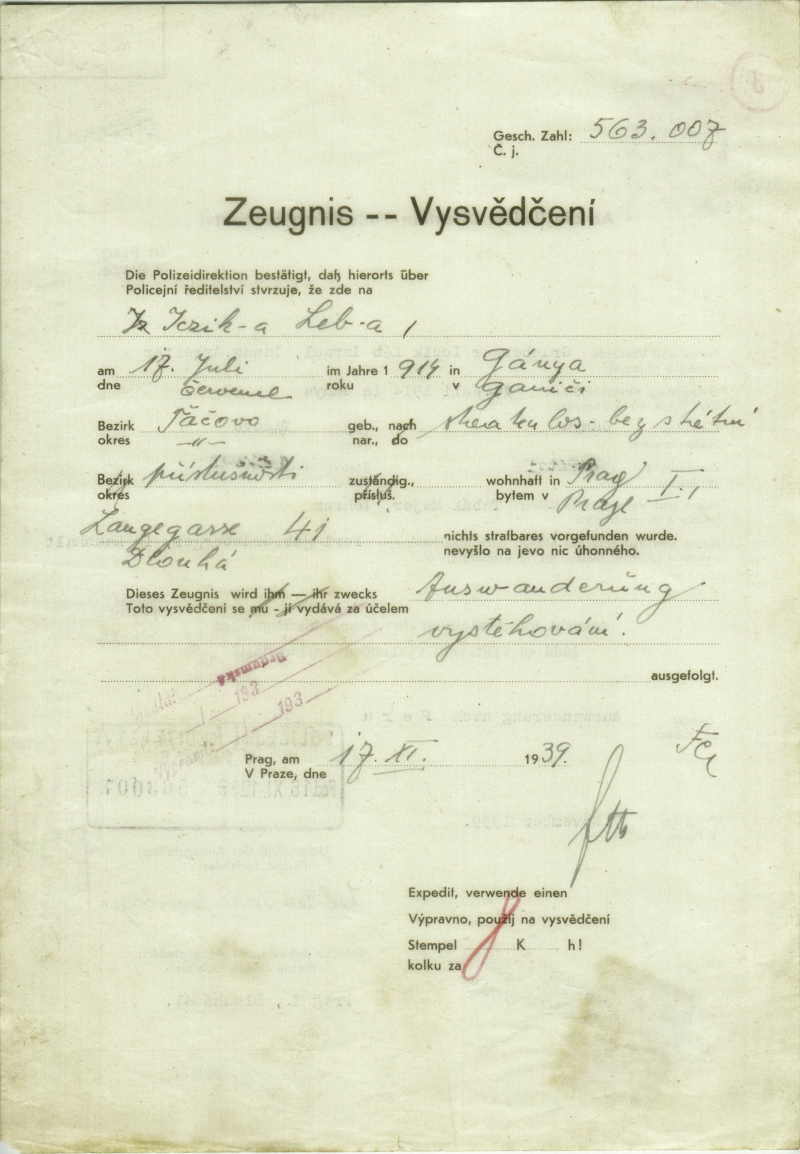 Gesch. Zahl: 563.007
Č. j.
Zeugnis -- Vysvědčení
Die Polizeidirektion bestätigt, daß hierorts über
Policejní ředitelství stvrzuje, že zde na
Iczik-a Leb-a,
am 17. Juli im Jahre 1 914 in Gánya
dne července roku v Ganiči
Bezirk Tačovo geb., nach staatenlos - bez státní
okres -"- nar., do
Bezirk příslušnosti zuständig., wohnhaft in Prag I.,
okres přísluš. bytem v Praze
Langegasse 41 nichts strafbares vorgefunden wurde.
Dlouhá nevyšlo na jevo nic úhonného.
Dieses Zeugnis wird ihm — ihr zwecks Auswanderung
Toto vysvědčení se mu - jí vydává za účelem
vystěhování.
ausgefolgt.
193
193
Prag, am 17. XI. 1939.
V Praze, dne
Expedit, verwende einen
Výpravno, použij na vysvědčení
Stempel K h!
kolku za 8